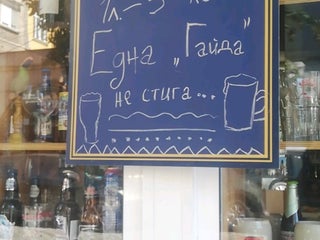 1л. – 5
Една „Гайда"
не стига...